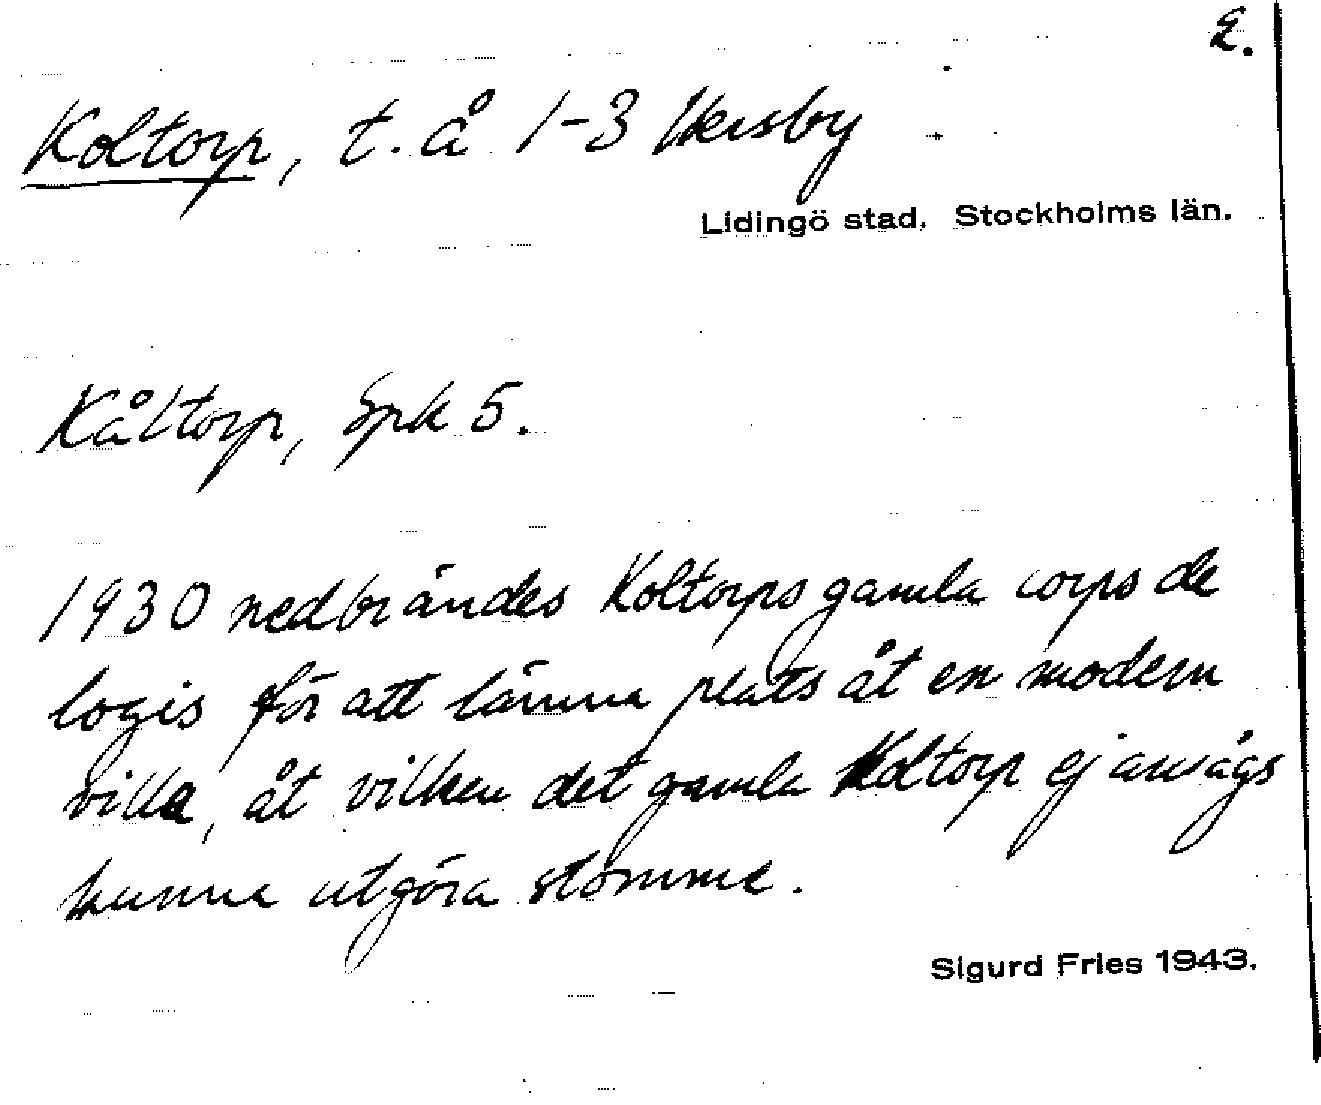 2.
Koltorp, t. å 1-3 Hersby
Lidingö stad. Stockholms län.
Kåltorp, Spk 5.
1930 nedbrändes Koltorps gamla corps de
logis för att lämna plats åt en modern
villa, åt vilken det gamla Koltorp ej ansågs
kunna utgöra stomme.
Sigurd Fries 1943.